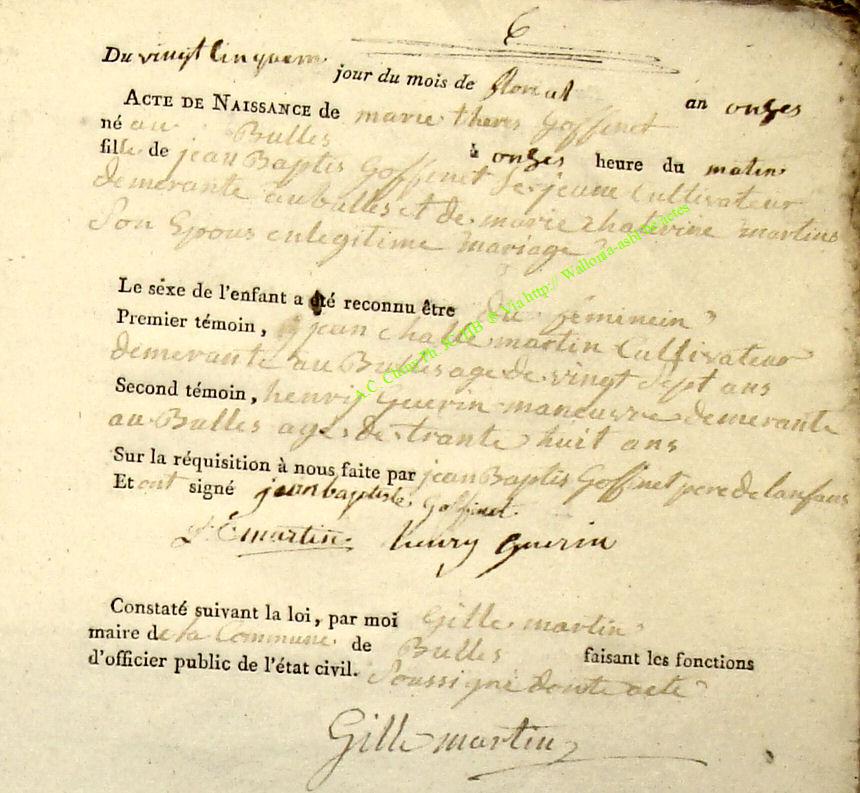 6
Du vingt cinquem jour du mois de floreal an onzes
ACTE DE NAISSANCE de marie theres Goffinet
né au Bulles à onzes heure du matin
fille de jean Baptis Goffinet Le jeune Cultivateur
demerante au bulles et de marie chaterine martins
Son Epous en legitime mariage
Le sexe de l'enfant a été reconnu être du féminein
Premier témoin, jean martin Cultivateur
demerante au Bulles age de vingt Sept ans
Second témoin, henry Guerin maneuvre demerante
au Bulles age de trante huit ans
Sur la réquisition à nous faite par jean Baptis Goffinet pere de lanfans
Et ont signé jean baptiste Goffinet.
martin henry guerin
Constaté suivant la loi, par moi Gille martin
maire de la Commune de Bulles faisant les fonctions
d'officier public de l'état civil. Soussigné donte acte
Gille martin
Via http:// Wallonia-asbl actes